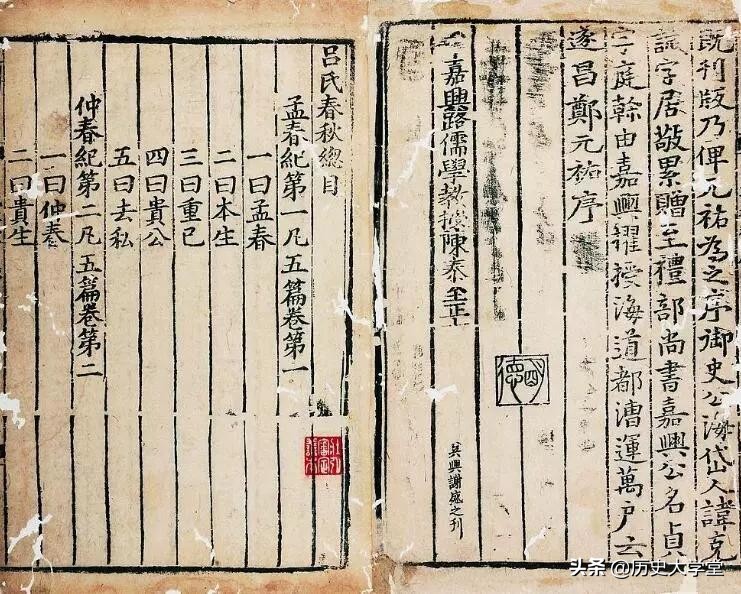 既刋版乃俾元祐為之序御史公海岱人諱克
誠字居敬累贈至禮部尚書嘉興公名貞
字庭幹由嘉興擢授海道都漕運萬户云
遂昌鄭元祐序
嘉興路儒學教授陳泰至正
吳興謝盛之刊
呂氏春秋總目
孟春紀第一凡五篇卷第一
一曰孟春
二曰本生
三曰重已
四曰貴公
五曰去私
仲春紀第二凡五篇卷第二
一曰仲春
二曰貴生
头条 @历史大学堂